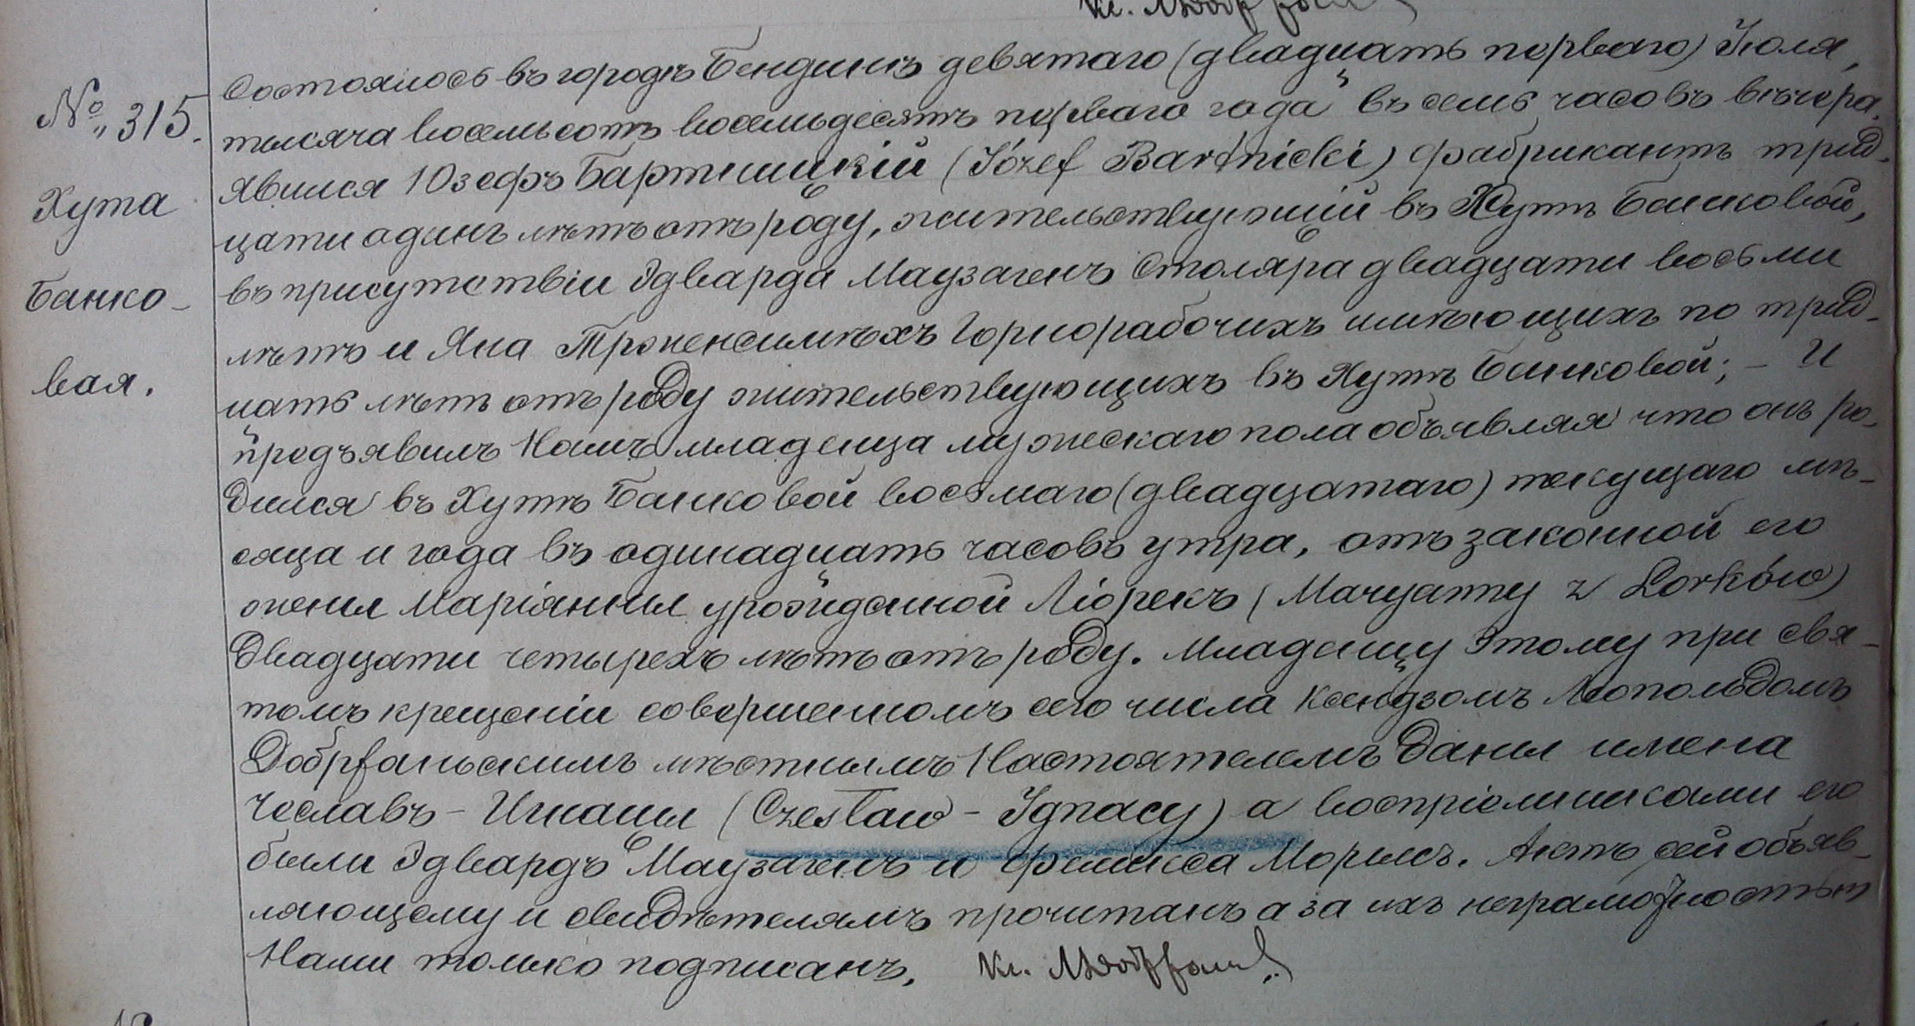 № 315.
Хута
Банко-
вая.
Состоялось въ городѣ Бендинѣ девятаго (двадцать перваго) Іюля,
тысяча восемьсотъ восемьдесятъ перваго года въ семь часовъ вечера.
Явился Юзефъ Бартницкій (Józef Bartnicki) фабрикантъ трид-
цати одинъ лѣтъ отъ роду, жительствующій въ Хутѣ Банковой,
въ присутствіи Эдварда Маузагенъ столяра двадцати восьми
лѣтъ и Яна горнорабочихъ имѣющихъ по трид-
цать лѣтъ отъ роду жительствующихъ въ Хутѣ Банковой; - И
предъявилъ Намъ младенца мужескаго пола объявляя что онъ ро-
дился въ Хутѣ Банковой восьмаго (двадцатаго) текущаго мѣ-
сяца и года въ одинадцать часовъ утра, отъ законной его
жены Маріянны урожденной Ліорекъ (Maryanny z Lorków)
двадцати четырехъ лѣтъ отъ роду. Младенцу этому при свя-
томъ крещеніи совершенномъ сего числа Ксендзомъ Леопольдомъ
Добржаньскимъ мѣстнымъ Настоятелемъ даны имена
Чеславъ - Игнацы (Czesław - Ignacy) а воспріемниками его
были Эдвардъ Маузагенъ и Морысъ. Актъ сей объяв-
ляющему и свидѣтелямъ прочитанъ а за ихъ неграмотностью
Нами только подписанъ.